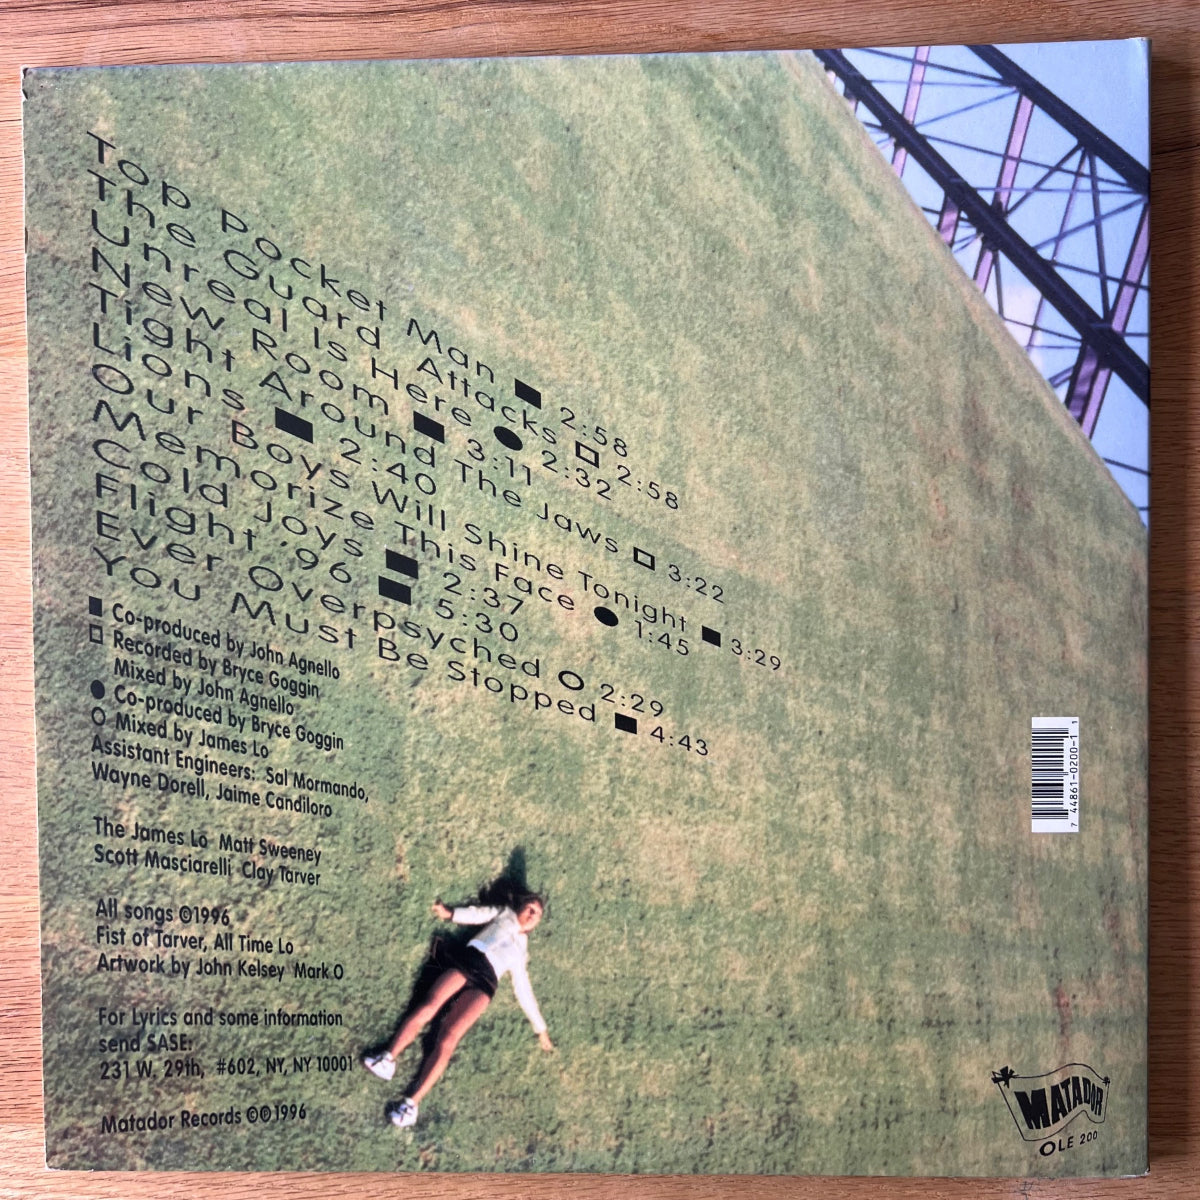 Top Pocket Man ■ 2:58
The Guard Attacks □ 2:58
Unreal Is Here ● 2:32
New Room ■ 3:11
Tight Around The Jaws □ 3:22
Lions ■ 2:40
Our Boys Will Shine Tonight ■ 3:29
Memorize This Face ● 1:45
Cold Joys ■ 2:37
Flight '96 ■ 5:30
Ever Overpsyched ○ 2:29
You Must Be Stopped ■ 4:43
■ Co-produced by John Agnello
□ Recorded by Bryce Goggin
Mixed by John Agnello
● Co-produced by Bryce Goggin
○ Mixed by James Lo
Assistant Engineers: Sal Mormando,
Wayne Dorell, Jaime Candiloro
The James Lo Matt Sweeney
Scott Masciarelli Clay Tarver
All songs ©1996
Fist of Tarver, All Time Lo
Artwork by John Kelsey Mark O
For Lyrics and some information
send SASE:
231 W. 29th, #602, NY, NY 10001
Matador Records ©℗1996
7 44861-0200-1 1
MATADOR
OLE 200